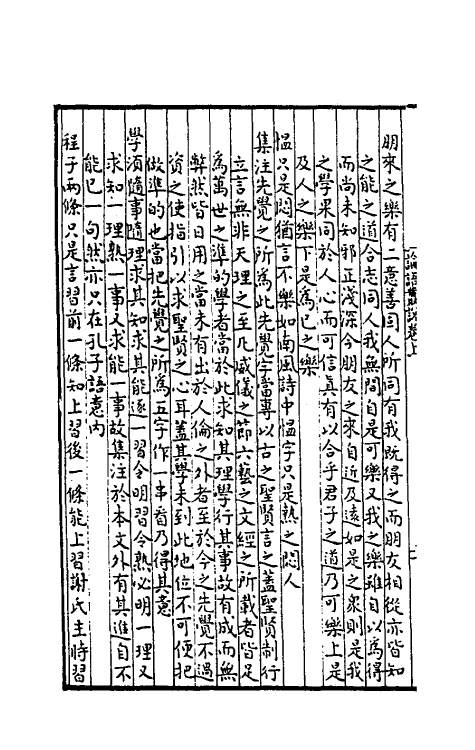 朋來之樂有二意善同人所同有我既得之而朋友相從亦皆知
之能之道合志同人我無間自是可樂又我之樂雖自以為得
而尚未知邪正淺深今朋友之來自近及遠如是之衆則是我
之學果同於人心而可信真有以合乎君子之道乃可樂上是
及人之樂下是為已之樂
愠只是悶猶言不樂如南風詩中愠字只是熱之悶人
集注先覺之所為此先覺字當專以古之聖賢言之蓋聖賢制行
立言無非天理之至凡威儀之節六藝之文經之所載者皆足
為萬世之準的學者當於此求知其理學行其事故有成而無
弊然皆日用之當未有出於人倫之外者至於今之先覺不過
資之使指引以求聖賢之心耳蓋其學未到此地位不可便把
做準的也當把先覺之所為五字作一串看乃得其意
學須隨事隨理求其知求其能逐一習令明習令熟必明一理又
求知一理熟一事又求能一事故集注於本文外有其進自不
能已一句然亦只在孔子語意内
程子兩條只是言習前一條知上習後一條能上習謝氏主時習